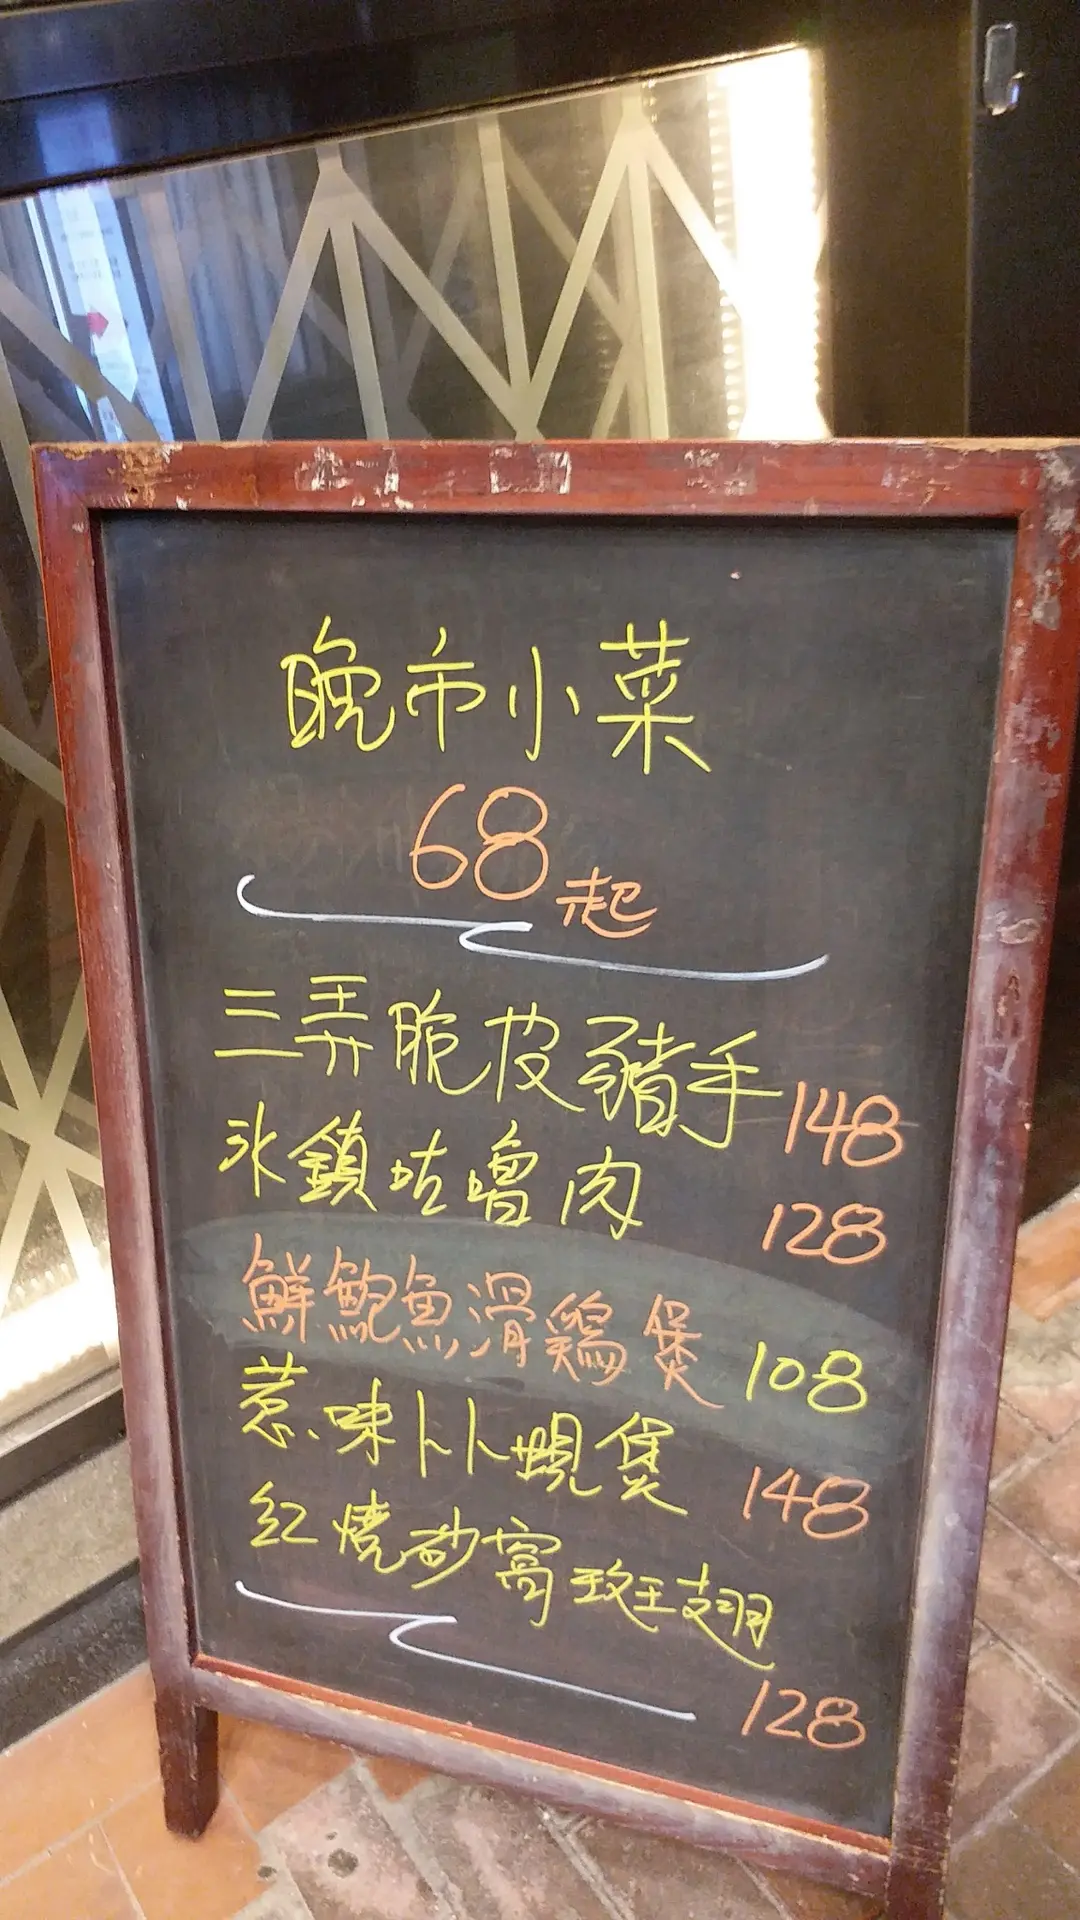 晚市小菜
68起
三弄脆皮豬手 148
氷鎮咕嚕肉 128
鮮鮑魚滑鶏煲 108
惹味卜卜蜆煲 148
紅燒砂窩斑翅 128